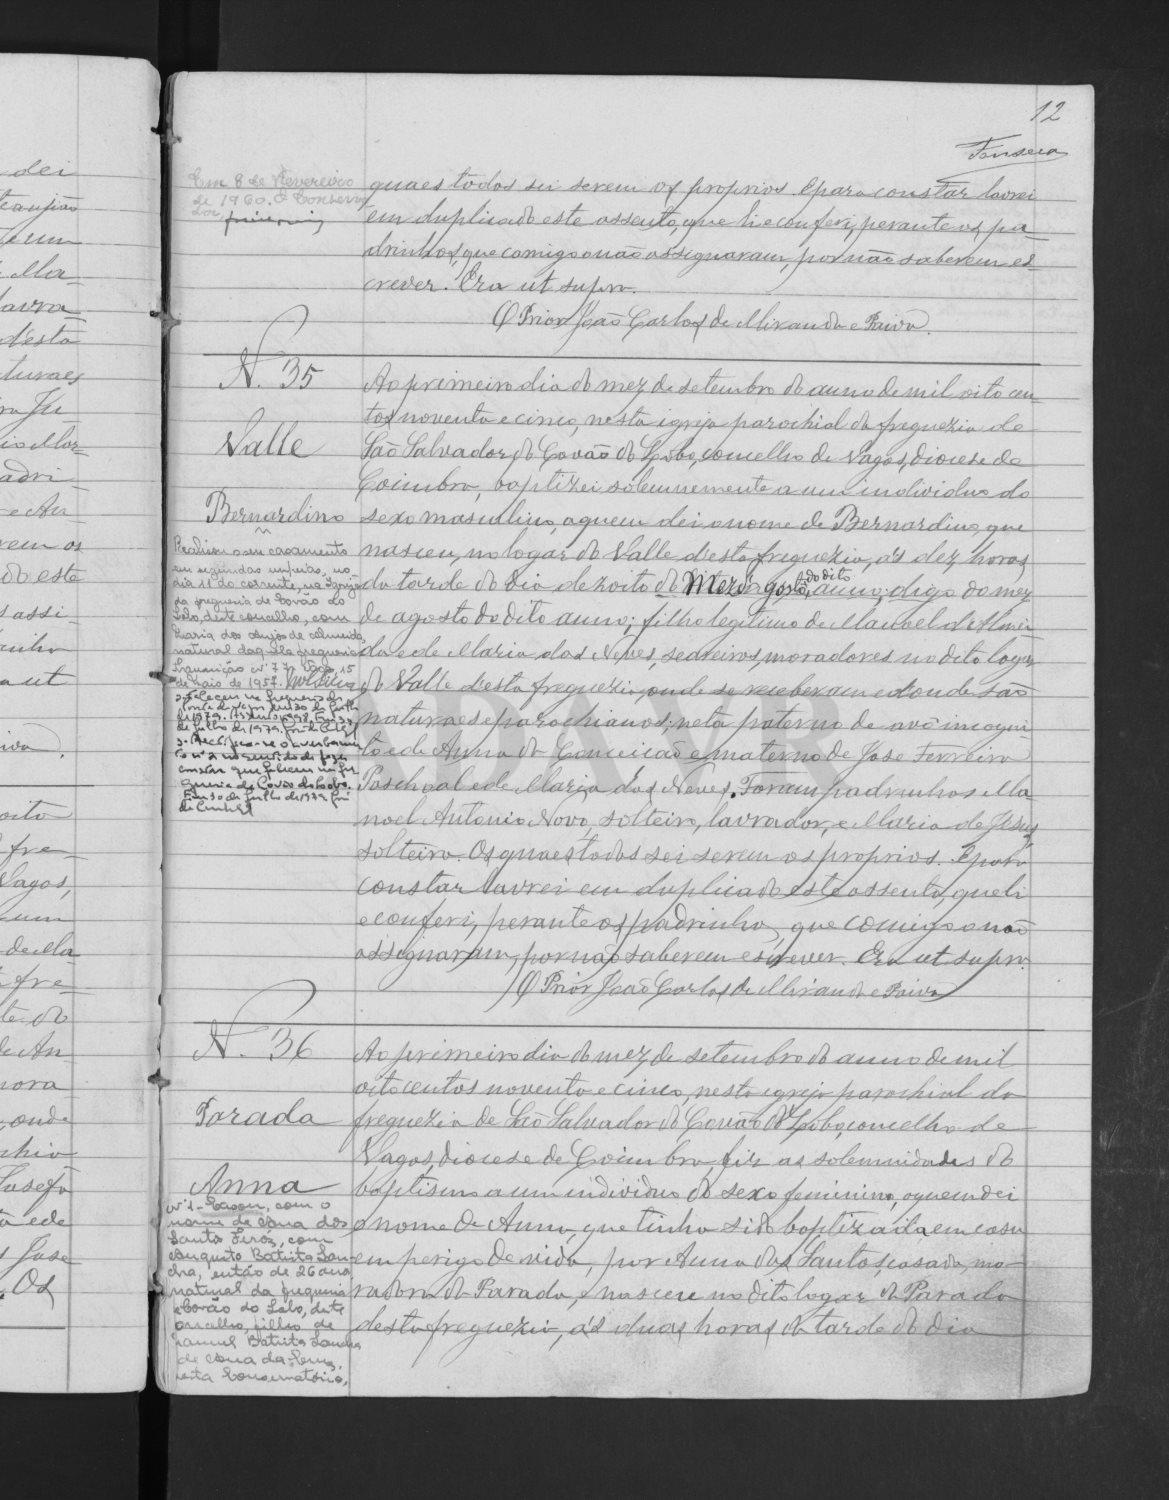 12
Fonseca
Em 8 de Fevereiro
de 1960. O Conserva
dor
quaes todos sei serem os proprios. E para constar lavrei
em duplicado este assento, que li e conferi, perante os pa-
drinhos, que comigo o não assignaram, por não saberem es-
crever. Era ut supra.
O Prior João Carlos de Miranda e Paiva.
N. 35
Valle
Bernardino
Ao primeiro dia do mez de setembro do anno de mil oito cen-
tos noventa e cinco, nesta igreja parochial da freguezia de
São Salvador do Covão do Lobo, concelho de Vagos, diocese de
Coimbra, baptizei solemnemente a um individuo do
sexo masculino, a quem dei o nome de Bernardino, que
nasceu no logar do Valle d'esta freguezia, ás dez horas
da tarde do dia dezoito do Mez agosto, do dito anno, digo do mez
de agosto do dito anno; filho legitimo de Manoel d'Almei-
da e de Maria das Neves, seareiros, moradores no dito logar
do Valle d'esta freguezia, onde se receberam e donde são
naturaes e parochianos; neto paterno de avô incogni-
to e de Anna da Conceição e materno de Jose Ferreira
Paschoal e de Maria das Neves. Foram padrinhos Ma-
noel Antonio Novo, solteiro, lavrador, e Maria de Jesus,
solteira. Os quaes todos sei serem os proprios. E para
constar lavrei em duplicado este assento, que li
e conferi, perante os padrinhos, que comigo o não
assignaram, por não saberem escrever. Era ut supra.
O Prior João Carlos de Miranda e Paiva
Realizou o seu casamento
em segundas nupcias, no
dia 11 do corrente, na Igreja
da freguesia de Covão do
Lobo, deste concelho, com
Maria dos Anjos de Almeida,
natural daquela freguesia
Vagos, 15
de Maio de 1957.
2. Faleceu na freguesia de
de Julho
de 1979. Assento nº 98. Em 30
de Julho de 1979.
3. Rectifica-se o averbamen
to nº 2 no sentido de fazer
constar que faleceu na fre
guesia de Covão do Lobo.
Em 30 de Julho de 1979.
N. 36
Parada
Anna
Ao primeiro dia do mez de setembro do anno de mil
oitocentos noventa e cinco, nesta igreja parochial da
freguezia de São Salvador do Covão do Lobo, concelho de
Vagos, diocese de Coimbra, fiz as solemnidades do
baptismo a um individuo do sexo feminino, a quem dei
o nome de Anna, que tinha sido baptizada em casa
em perigo de vida, por Anna dos Santos, casada, mo-
radora da Parada, e nasceu no dito logar da Parada
desta freguezia, ás duas horas da tarde do dia
Nº 1 - Casou, com o
nome de Ana dos
Santos Feroz, com
Augusto Batista Lan-
dra, então de 26 anos
natural da freguesia
Covão do Lobo, deste
concelho, filho de
Manuel Batista Landra
de Ana da Cruz,
nesta Conservatória,